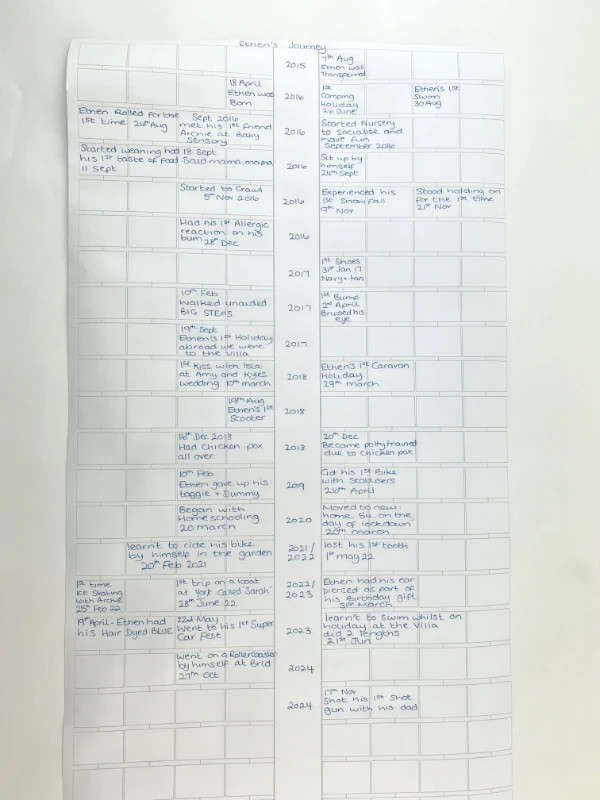 Ethen's Journey
2015
7th Aug
Ethen was
Transferred
18 April
Ethen was
Born
2016
1st
Camping
Holiday
26 June
Ethen's 1st
Swim
30 Aug
Ethen Rolled for the
1st time 24th Aug
Sept 2016
met his 1st friend
Archie at Baby
Sensory
2016
Started Nursery
to socialise and
have fun
September 2016
Started weaning had
his 1st taste of food
11 Sept
18 Sept
Said mama, mama
2016
Sit up by
himself
24th Sept
Started to Crawl
5th Nov 2016
2016
Experienced his
1st Snow fall
9th Nov
Stood holding on
for the 1st time
21st Nov
Had his 1st Allergic
reaction on his
bum 28th Dec
2016
2017
1st Shoes
31st Jan 17
Navy + tan
10th Feb
Walked unaided
BIG STEPS
2017
1st Bump
2nd April
Bruised his
eye
19th Sept
Ethen's 1st Holiday
abroad we went
to the Villa
2017
1st Kiss with Isla
at Amy and Kyles
wedding 10th march
2018
Ethen's 1st Caravan
Holiday
29th march
19th Aug
Ethen's 1st
Scooter
2018
16th Dec 2018
Had chicken pox
all over
2018
20th Dec
Became potty trained
due to chicken pox
10th Feb
Ethen gave up his
taggie + Dummy
2019
Got his 1st Bike
with Stabalisers
26th April
Began with
Home schooling
20 march
2020
Moved to new
home, 54. on the
day of lockdown
20th march
learn't to ride his bike
by himself in the garden
20th Feb 2021
2021/
2022
lost his 1st tooth
1st may 22
1st time
Ice Skating
with Archie
25th Feb 22
1st trip on a boat
at York called 'Sarah'
28th June 22
2022/
2023
Ethen had his ear
pierced as part of
his Birthday gift
31st March
19th April - Ethen had
his Hair Dyed BLUE
22nd May
Went to his 1st Super
Car Fest
2023
learn't to Swim whilst on
holiday at the Villa
did 2 lengths
21st Jun
Went on a Rollercoaster
by himself at Brid
27th Oct
2024
2024
17th Nov
Shot his 1st Shot
gun with his dad